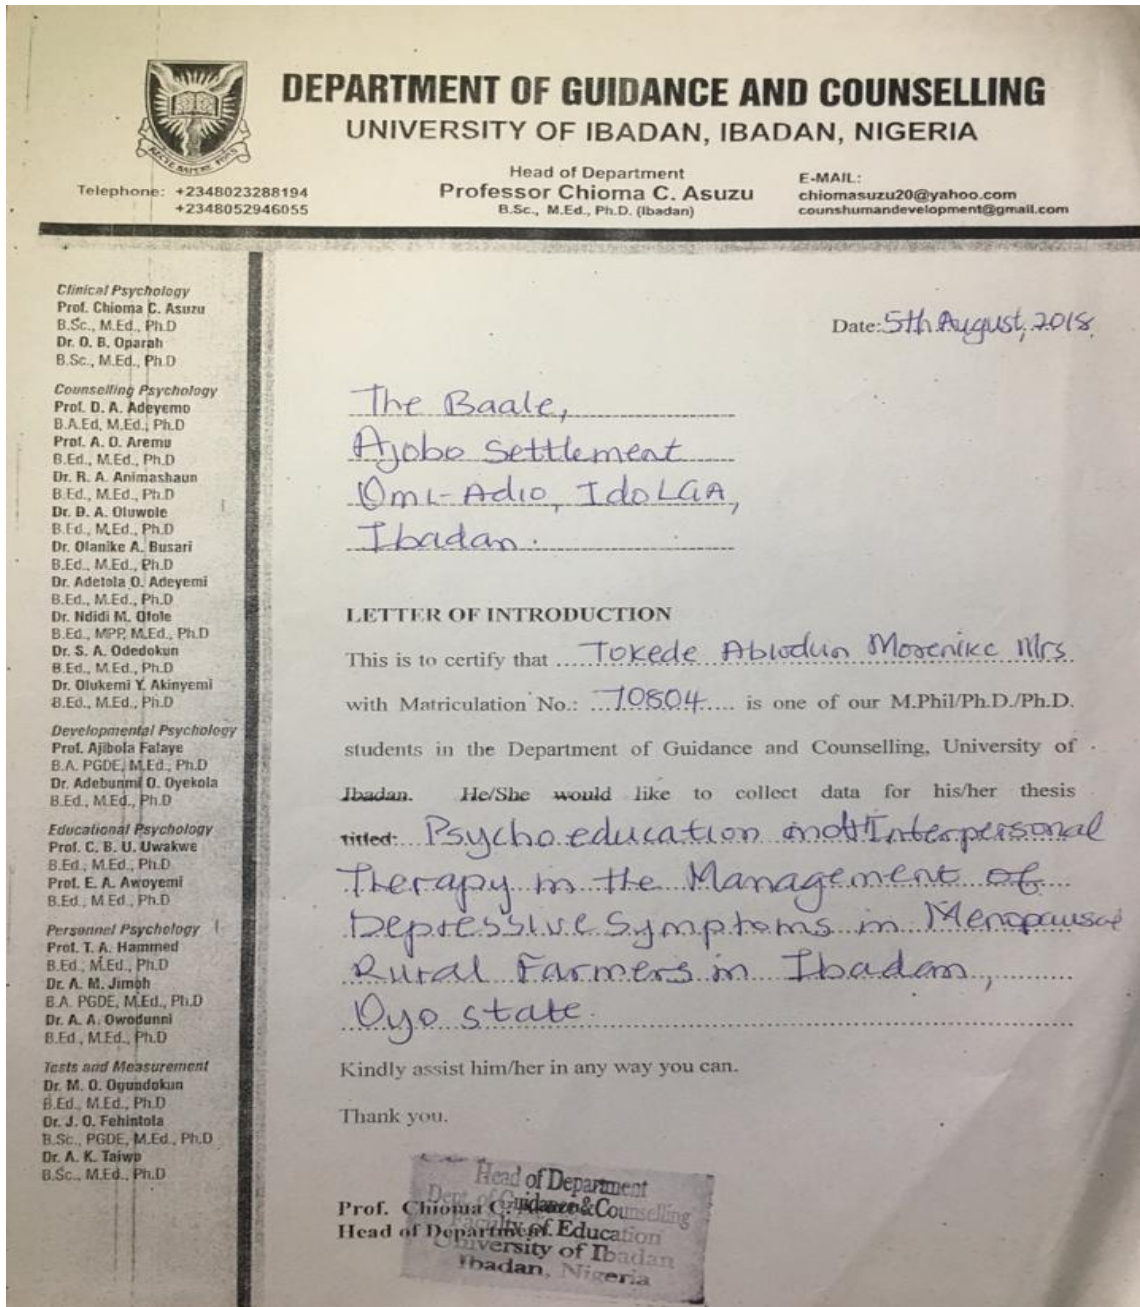 DEPARTMENT OF GUIDANCE AND COUNSELLING
UNIVERSITY OF IBADAN, IBADAN, NIGERIA
Head of Department
Professor Chioma C. Asuzu
B.Sc., M.Ed., Ph.D. (Ibadan)
Telephone: +2348023288194
+2348052946055
E-MAIL:
chiomasuzu20@yahoo.com
counshumandevelopment@gmail.com
Clinical Psychology
Prof. Chioma C. Asuzu
B.Sc., M.Ed., Ph.D
Dr. O. B. Oparah
B.Sc., M.Ed., Ph.D
Counselling Psychology
Prof. D. A. Adeyemo
B.A.Ed, M.Ed., Ph.D
Prof. A. O. Aremu
B.Ed., M.Ed., Ph.D
Dr. R. A. Animashaun
B.Ed., M.Ed., Ph.D
Dr. D. A. Oluwole
B.Ed., M.Ed., Ph.D
Dr. Olanike A. Busari
B.Ed., M.Ed., Ph.D
Dr. Adetola O. Adeyemi
B.Ed., M.Ed., Ph.D
Dr. Ndidi M. Ofole
B.Ed., MPP, M.Ed., Ph.D
Dr. S. A. Odedokun
B.Ed., M.Ed., Ph.D
Dr. Olukemi Y. Akinyemi
B.Ed., M.Ed., Ph.D
Developmental Psychology
Prof. Ajibola Falaye
B.A. PGDE, M.Ed., Ph.D
Dr. Adebunmi O. Oyekola
B.Ed., M.Ed., Ph.D
Educational Psychology
Prof. C. B. U. Uwakwe
B.Ed., M.Ed., Ph.D
Prof. E. A. Awoyemi
B.Ed., M.Ed., Ph.D
Personnel Psychology
Prof. T. A. Hammed
B.Ed., M.Ed., Ph.D
Dr. A. M. Jimoh
B.A. PGDE, M.Ed., Ph.D
Dr. A. A. Owodunni
B.Ed., M.Ed., Ph.D
Tests and Measurement
Dr. M. O. Ogundokun
B.Ed., M.Ed., Ph.D
Dr. J. O. Fehintola
B.Sc., PGDE, M.Ed., Ph.D
Dr. A. K. Taiwo
B.Sc., M.Ed., Ph.D
Date: 5th August, 2018.
The Baale,
Ajobo Settlement
Omi-Adio, Ido LGA,
Ibadan.
LETTER OF INTRODUCTION
This is to certify that Tokede Abiodun Morenike Mrs
with Matriculation No.: 70804 is one of our M.Phil/Ph.D./Ph.D.
students in the Department of Guidance and Counselling, University of
Ibadan. He/She would like to collect data for his/her thesis
titled: Psychoeducation and Interpersonal
Therapy in the Management of
Depressive Symptoms in Menopausal
Rural Farmers in Ibadan,
Oyo state.
Kindly assist him/her in any way you can.
Thank you.
Prof. Chioma C.
Head of Department
Head of Department
Dept. of Guidance & Counselling
Faculty of Education
University of Ibadan
Ibadan, Nigeria